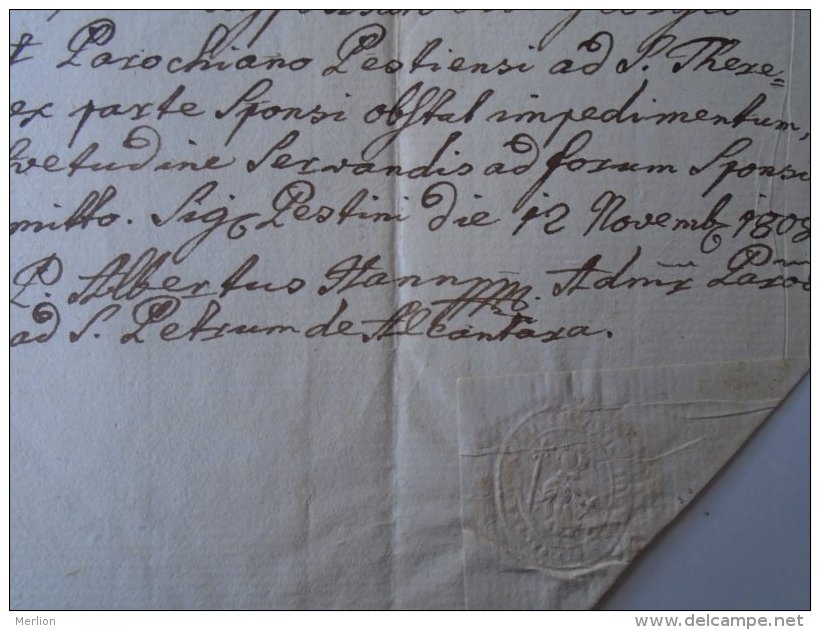 Parochiano Pestiensi ad S. There=
ex parte Sponsi obstat impedimentum,
vetudine Servandis ad forum Sponsi
mitto. Sig. Pestini die 12 Novemb. 1808
P. Albertus Hann mp. Admr Paroc
ad S. Petrum de Alcantara.
Merlion
www.delcampe.net